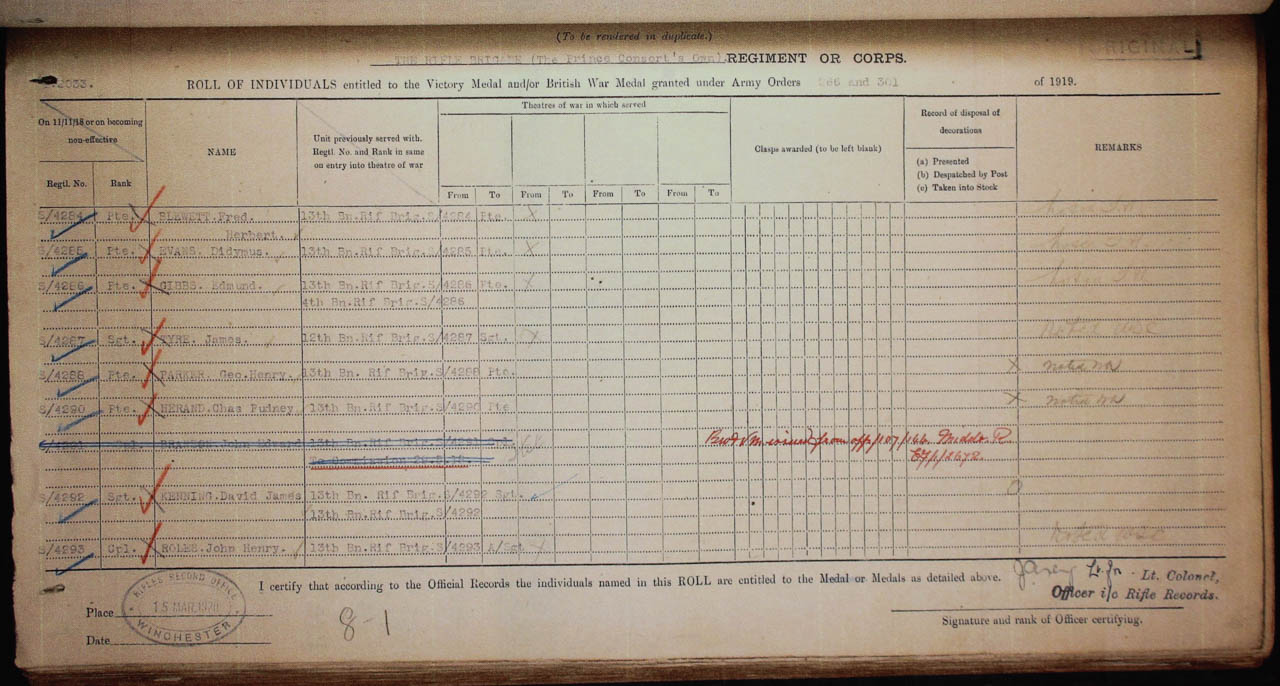 (To be rendered in duplicate.)
THE RIFLE BRIGADE (The Prince Consort's Own) REGIMENT OR CORPS.
ROLL OF INDIVIDUALS entitled to the Victory Medal and/or British War Medal granted under Army Orders 266 and 301 of 1919.
On 11/11/18 or on becoming non-effective
Regtl. No. Rank
NAME
Unit previously served with. Regtl. No. and Rank in same on entry into theatre of war
Theatres of war in which served
From To From To From To From To
Clasps awarded (to be left blank)
Record of disposal of decorations
(a) Presented
(b) Despatched by Post
(c) Taken into Stock
REMARKS
S/4284 Pte. BLEWETT. Fred. 13th Bn.Rif Brig.S/4284 Pte. X
Herbert.
S/4285 Pte. EVANS. Didymus. 13th Bn.Rif Brig.S/4285 Pte. X
S/4286 Pte. GIBBS. Edmund. 13th Bn.Rif Brig.S/4286 Pte. X
4th Bn.Rif Brig.S/4286
S/4287 Sgt. TYRE. James. 12th Bn.Rif Brig.S/4287 Sgt. X Noted
S/4288 Pte. PARKER. Geo.Henry. 13th Bn. Rif Brig.S/4288 Pte. X Noted
S/4290 Pte. HERAND.Chas Pudney 13th Bn.Rif Brig.S/4290 Pte X Noted
John Edward 13th Bn.Rif Brig.S/4291
To Commission
issued from
S/4292 Sgt. KENNING.David James 13th Bn. Rif Brig.S/4292 Sgt.
13th Bn.Rif Brig.S/4292
S/4293 Cpl. ROLES.John Henry. 13th Bn.Rif Brig.S/4293 A/Sgt X Noted
I certify that according to the Official Records the individuals named in this ROLL are entitled to the Medal or Medals as detailed above.
Lt. Colonel,
Officer i/c Rifle Records.
Signature and rank of Officer certifying.
Place
Date
RIFLES RECORD OFFICE
15 MAR.1920
WINCHESTER
8-1